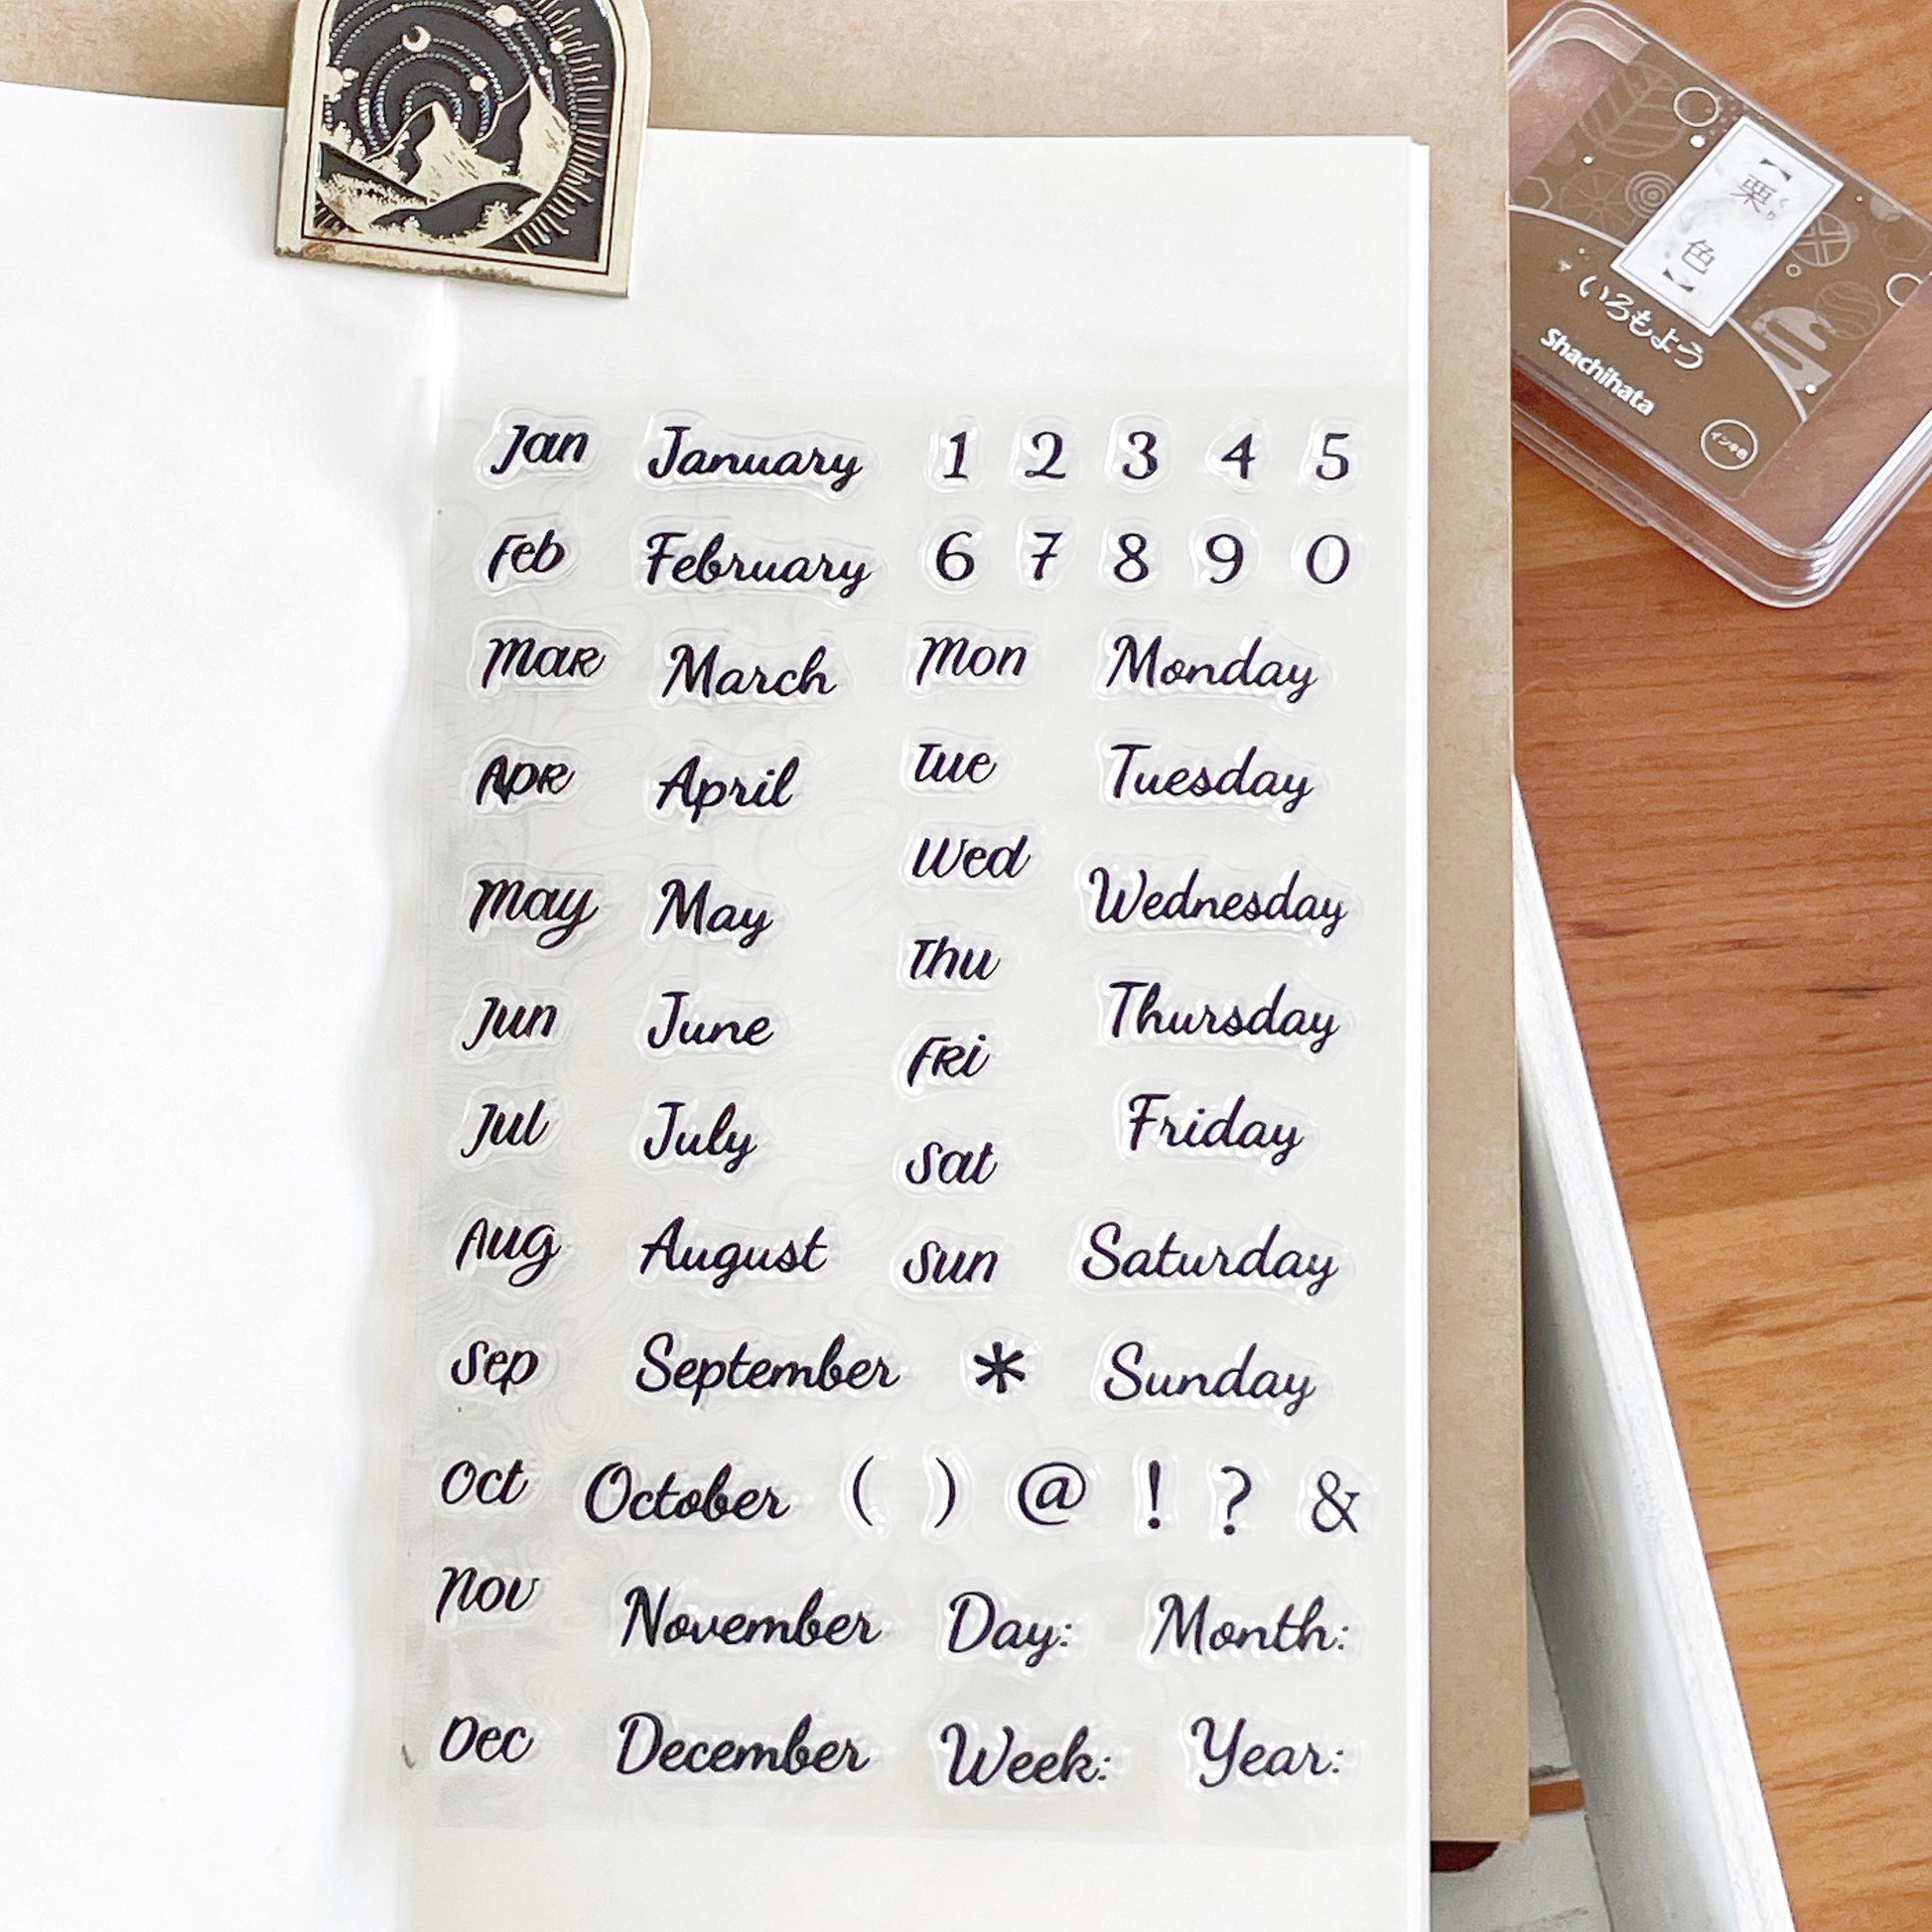 Jan January 1 2 3 4 5
Feb February 6 7 8 9 0
Mar March Mon Monday
Apr April Tue Tuesday
Wed
May May Wednesday
Thu
Jun June Thursday
Fri
Jul July Friday
Sat
Aug August Sun Saturday
Sep September * Sunday
Oct October ( ) @ ! ? &
Nov November Day: Month:
Dec December Week: Year:
【栗色】
くり
いろもよう
Shachihata